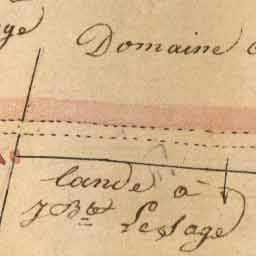 age
Domaine
lande à
J Bte Le Sage